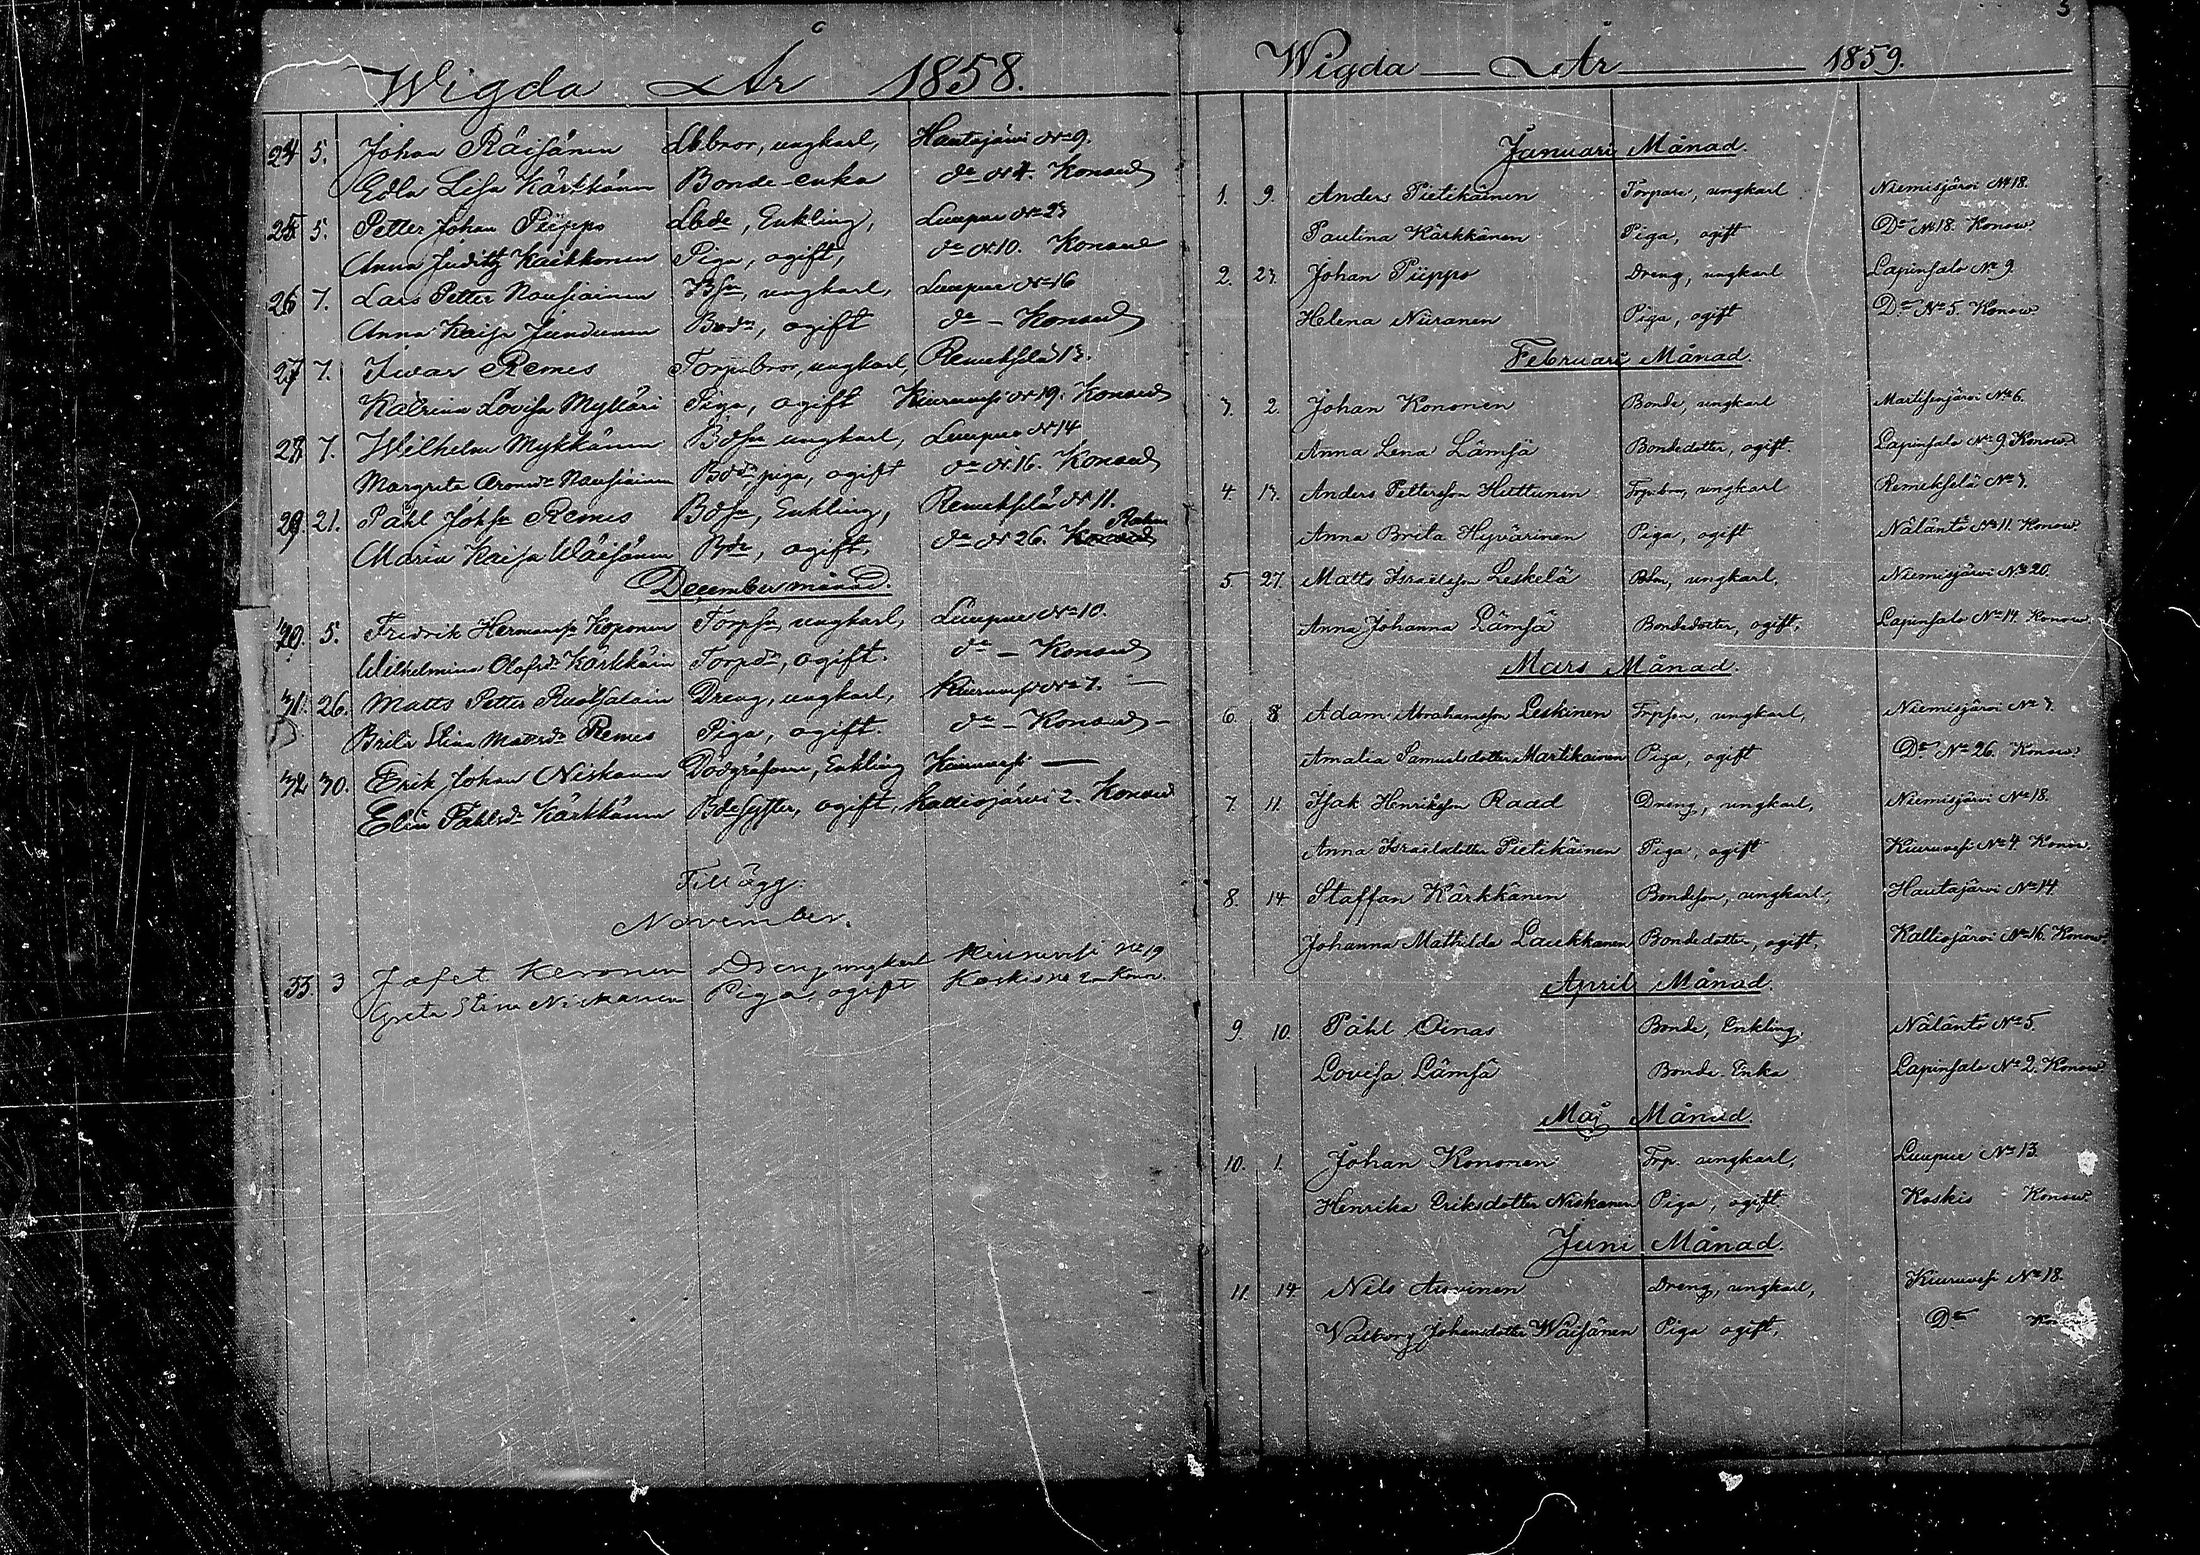 Wigda År 1858.
24 5. Johan Räisänen Lbbror, ungkarl, Hautajärvi No 9.
Edla Lisa Kärkkäinen Bonde-enka do No 4. Konow
25 5. Petter Johan Piippo Lbde, Enkling, Luupue No 23
Anna Judith Kaikkonen Piga, ogift, do No 10. Konow
26 7. Lars Petter Nousiainen Bsn, ungkarl, Luupue No 16
Anna Kaisa Bdr, ogift do – Konow
27 7. Iwar Remes Torp.bror, ungkarl, Remeksela 13.
Katrina Lovisa Myllari Piga, ogift Kiuruvesi No 19. Konow
28 7. Wilhelm Mykkänen Bdsn ungkarl, Luupue No 14
Margreta Aronsdr Nousiainen piga, ogift do No 16. Konow
29 21. Påhl Johsn Remes Bdsn, Enkling, Remekselä No 11.
Maria Kaisa Wäisänen Bdr, ogift, do No 26.
December månad.
30. 5. Fredrik Hermansn Koponen Torpsn, ungkarl, Luupue No 10.
Wilhelmina Olofsdr Kärkkäin Torpdr, ogift. do – Konow
31. 26. Matts Petter Ruotsalain Dreng, ungkarl, Kiuruvesi No 7. –
Brita Stina Matsdr Remes Piga, ogift. do – Konow –
32 30. Erik Johan Niskanen Dödgräfvare, Enkling Kiuruvesi —
Elin Påhlsdr Kärkkäinen Bdesyster, ogift, Kaliojärvi 2. Konow
Tillägg:
November.
33. 3 Jafet Keronen Dreng ungkarl Kiuruvesi No 19
Greta Stina Niskanen Piga, ogift Koskis No 2 Konv.
5
Wigda — År — 1859.
Januari Månad.
1. 9. Anders Pietikäinen Torpare, ungkarl Niemisjärvi No 18.
Paulina Kärkkänen Piga, ogift Do No 18. Konow
2. 23. Johan Piippo Dreng, ungkarl Lapinsalo No 9.
Helena Niiranen Piga, ogift Do No 5. Konow
Februari Månad.
3. 2. Johan Kononen Bonde, ungkarl Martisenjärvi No 6.
Anna Lena Lämsä Bondedotter, ogift. Lapinsalo No 9. Konow
4. 13. Anders Pettersson Huttunen Torp.bror, ungkarl Remekselä No 3.
Anna Brita Hyvärinen Piga, ogift Nälänto No 11. Konow
5 27. Matts Israelsson Leskelä Bson, ungkarl, Niemisjärvi No 20.
Anna Johanna Lämsä Bondedotter, ogift, Lapinsalo No 14. Konow.
Mars Månad.
6. 8 Adam Abrahamsson Leskinen Trpson, ungkarl, Niemisjärvi No 3.
Amalia Samuelsdotter Martikainen Piga, ogift Do No 26. Konow
7. 11. Isak Henriksson Raad Dreng, ungkarl, Niemisjärvi No 18.
Anna Israelsdotter Pietikäinen Piga, ogift Kiuruvesi No 4 Konow.
8. 14 Staffan Kärkkänen Bondeson, ungkarl, Hautajärvi No 14.
Johanna Mathilda Laukkanen Bondedotter, ogift, Kalliojärvi No 16. Konow.
April Månad.
9. 10. Påhl Oinas Bonde, Enkling, Nälänto No 5.
Lovisa Lämsä Bonde-Enka Lapinsalo No 2. Konow
Maj Månad.
10. 1. Johan Kononen Trp. ungkarl, Luupue No 13.
Henrika Eriksdotter Niskanen Piga, ogift. Koskis Konow
Juni Månad.
11. 14 Nils Arvinen Dreng, ungkarl, Kiuruvesi No 18.
Walborg Johansdotter Wäisänen Piga ogift, Do